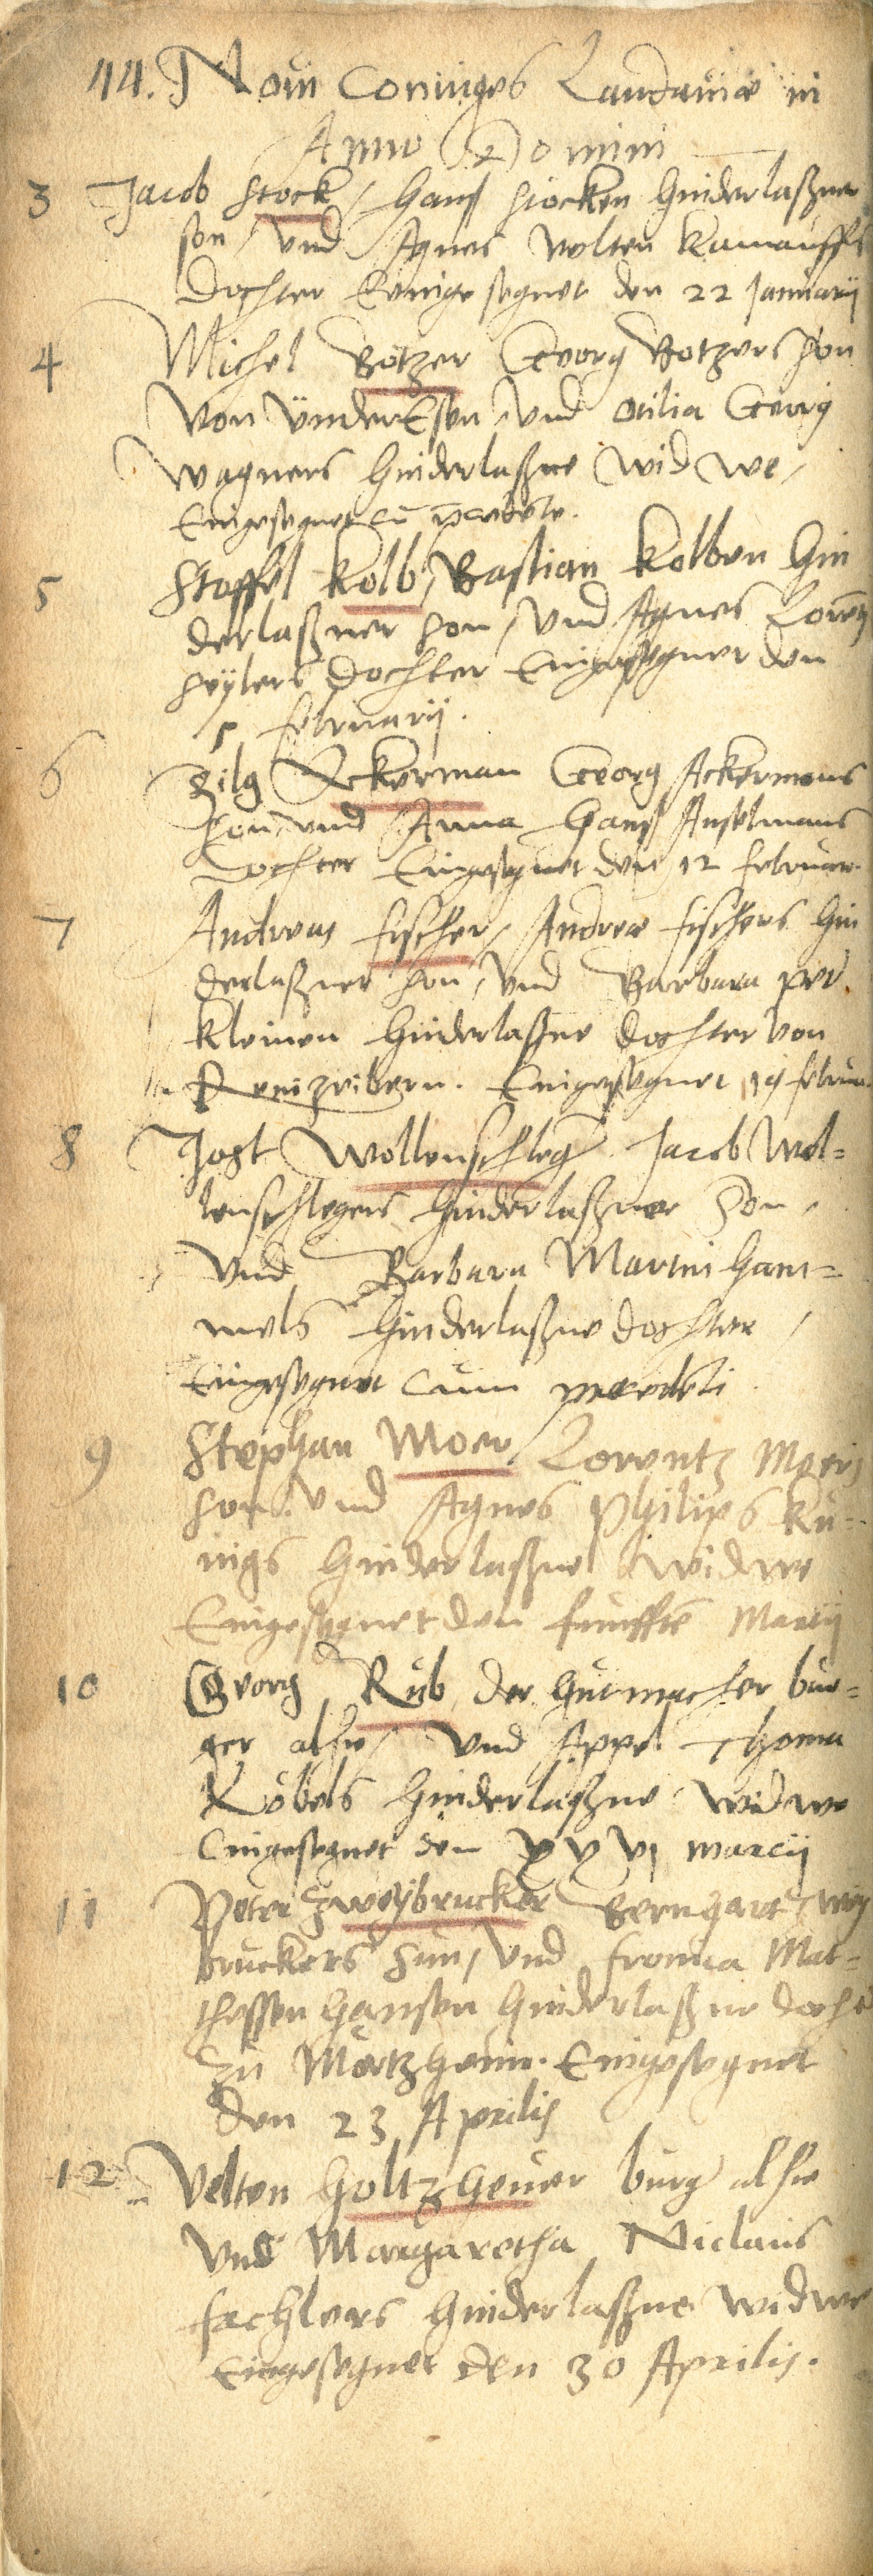 114. Novi Coniuges Landaviae in
Anno Domini
3 Jacob Stock, Hans Stocken hinderlaßner
son, vnd Agnes Velten Kamauffs
Dochter Einigesegnet den 22 Januarij
4 Michel Botzer Georg Botzers Son
Von ÿnderEsen, vnd Otilia Georg
Wagners hinderlaßne Widwe,
Eingesegnet cu praecedēte.
5 Stoffel Kolb, Bastian Kolben hin
derlaßner Son, vnd Agnes Lorentz
Seÿlers Dochter Eingesegnet den
5 Februarij.
6 Gilg Ackerman Georg Ackermans
Son, vnd Anna Hans Anselmans
Dochter Eingesegnet den 12 Februar.
7 Andreas Fischer, Andree Fischers hin
derlaßner Son, vnd Barbara Peter
Kleinen hinderlaßne dochter von
Eingesegnet 19 Februa.
8 Jost Wollenschleger Jacob Wol=
lenschlegers hinderlaßner Son,
Vnd Barbara Martin Ham=
mels hinderlaßne dochter,
Eingesegnet cum praecedēti.
9 Stephan Moer, Lorentz Moers
Son, Vnd Agnes Philips Kü=
nigs hinderlaßne widwe
Eingesegnet den funfftē Martij
10 Georg Rüb, der Hutmacher bur=
ger alhie, Vnd Appel Thoma
Köbels hinderlaßne widwe
Eingesegnet den xxvj Marcij
11 Peter Zweÿbrucker Bernhart Zweÿ
bruckers Sun, Vnd Fronica Mat=
thessen Hansen hinderlaßne doch
zu Mörtzheim. Eingesegnet
den 23 Aprilis
12 Velten Holtzheuer burger alhie
Vnd Margaretha Niclaus
Fachlers hinderlaßne widwe
Eingesegnet den 30 Aprilis.